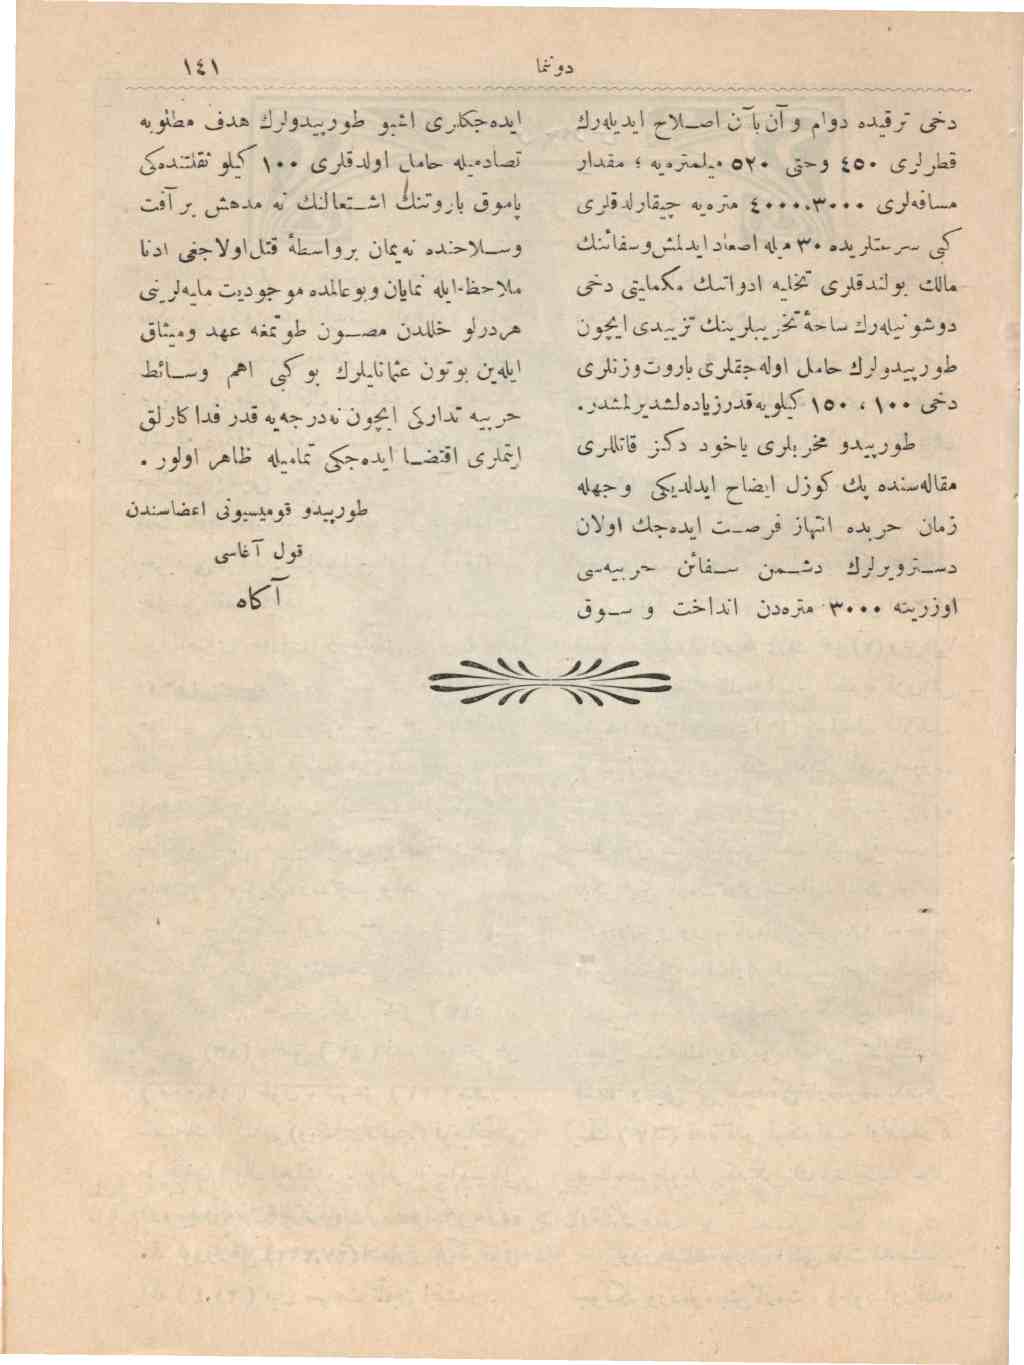 دوننما
١٤١
دخی ترقیده دوام و آن بآن اصلاح ایدیلەرك
قطرلری ٤٥٠ وحتی ٥٢٠ میلمترەیه ؛ مقدار
مسافەلری ٤٠٠٠،٣٠٠٠ مترەیه چیقارلدقلری
کبی سرعتلریده ٣٠ میله اصعاد ایدلمش وسفائنك
مالك بولندقلری تخلیه ادواتنك مکملیتی دخی
دوشونیلەرك ساحهٔ تخریبلرینك تزییدی ایچون
طورپیدولرك حامل اولەجقلری باروت وزنلری
دخی ١٠٠ ، ١٥٠ کیلویه قدر زیادەلشدیرلمشدر.
طورپیدو مخربلری یاخود دکز قاتللری
مقالەسنده پك کوزل ایضاح ایدلدیکی وجهله
زمان حربده انتهاز فرصت ایدەجك اولان
دسترویرلرك دشمن سفائن حربیەسی
اوزرینه ٣٠٠٠ مترەدن انداخت و سوق
ایدەجکلری اشبو طورپیدولرك هدف مطلوبه
تصادمیله حامل اولدقلری ١٠٠ کیلو ثقلتندەکی
پاموق باروتنك اشتعالنك نه مدهش بر آفت
وسلاحنده نەیمان برواسطهٔ قتل اولاجغی ادنا
ملاحظه ایله نمایان وبوعالمده موجودیت مایەلرینی
هردرلو خللدن مصون طوتمغه عهد ومیثاق
ایلەین بوتون عثمانلیلرك بو کبی اهم وسائط
حربیه تدارکی ایچون نەدرجەیه قدر فداکارلق
ایتملری اقتضا ایدەجکی تمامیله ظاهر اولور .
طورپیدو قومیسیونی اعضاسندن
قول آغاسی
آکاه